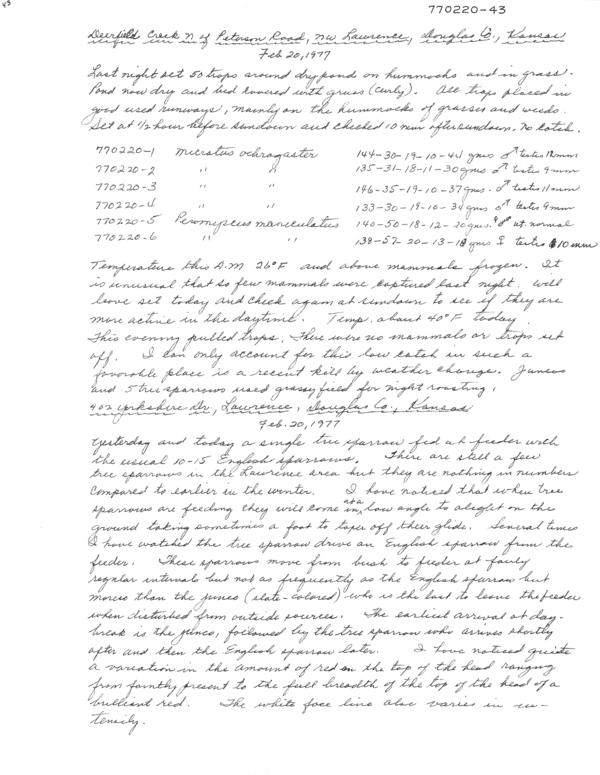 43
770220-43
Deerfield Creek N of Peterson Road, NW Lawrence, Douglas Co., Kansas
Feb 20, 1977
Last night set 50 traps around dry pond on hummocks and in grass.
Pond now dry and bed covered with grass (curly). All traps placed in
good used runways, mainly on the hummocks of grasses and weeds.
Set at 1/2 hour before sundown and checked 10 min after sundown. No catch.
770220-1 Microtus ochrogaster 144-30-19-10-44 gms ♂ testes 12mm
770220-2 " " 135-31-18-11-30 gms ♂ testes 9mm
770220-3 " " 146-35-19-10-37 gms. ♂ testes 11mm
770220-4 " " 133-30-19-10-34 gms ♂ testes 9mm
770220-5 Peromyscus maniculatus 140-50-18-12-20 gms. ut. normal
770220-6 " " 139-57-20-13-18 gms ♀ testes 10mm
Temperature this A.M 26°F and above mammals frozen. It
is unusual that so few mammals were captured last night. Will
leave set today and check again at sundown to see if they are
more active in the daytime. Temp. about 40°F today.
This evening pulled traps. There were no mammals or traps set
off. I can only account for this low catch in such a
favorable place is a recent kill by weather change. Juncos
and 5 tree sparrows used grassy field for night roosting.
402 Yorkshire Dr, Lawrence, Douglas Co., Kansas
Feb. 20, 1977
Yesterday and today a single tree sparrow fed at feeder with
the usual 10-15 English sparrows. There are still a few
tree sparrows in the Lawrence area but they are nothing in numbers
compared to earlier in the winter. I have noticed that when tree
sparrows are feeding they will come in at a low angle to alight on the
ground taking sometimes a foot to taper off their glide. Several times
I have watched the tree sparrow drive an English sparrow from the
feeder. These sparrows move from bush to feeder at fairly
regular intervals but not as frequently as the English sparrow but
moreso than the junco (slate-colored) who is the last to leave the feeder
when disturbed from outside sources. The earliest arrival at day-
break is the junco, followed by the tree sparrow who arrives shortly
after and then the English sparrow later. I have noticed quite
a variation in the amount of red on the top of the head ranging
from faintly present to the full breadth of the top of the head of a
brilliant red. The white face line also varies in in-
tensity.